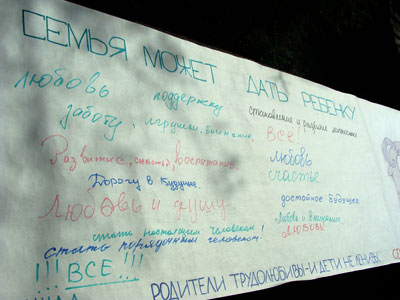 СЕМЬЯ МОЖЕТ ДАТЬ РЕБЕНКУ
Любовь
поддержку
заботу, игрушки, внимание,
становление и развитие
ВСЕ!
Развитие, счастье, воспитание
любовь
счастье
Дорогу в будущее.
Любовь и душу.
достойное будущее
стать настоящим человеком!
Любовь и Внимание
Любовь
стать порядочным человеком!
!!! ВСЕ !!!
РОДИТЕЛИ ТРУДОЛЮБИВЫ-И ДЕТИ НЕ ЛЕНИВЫ